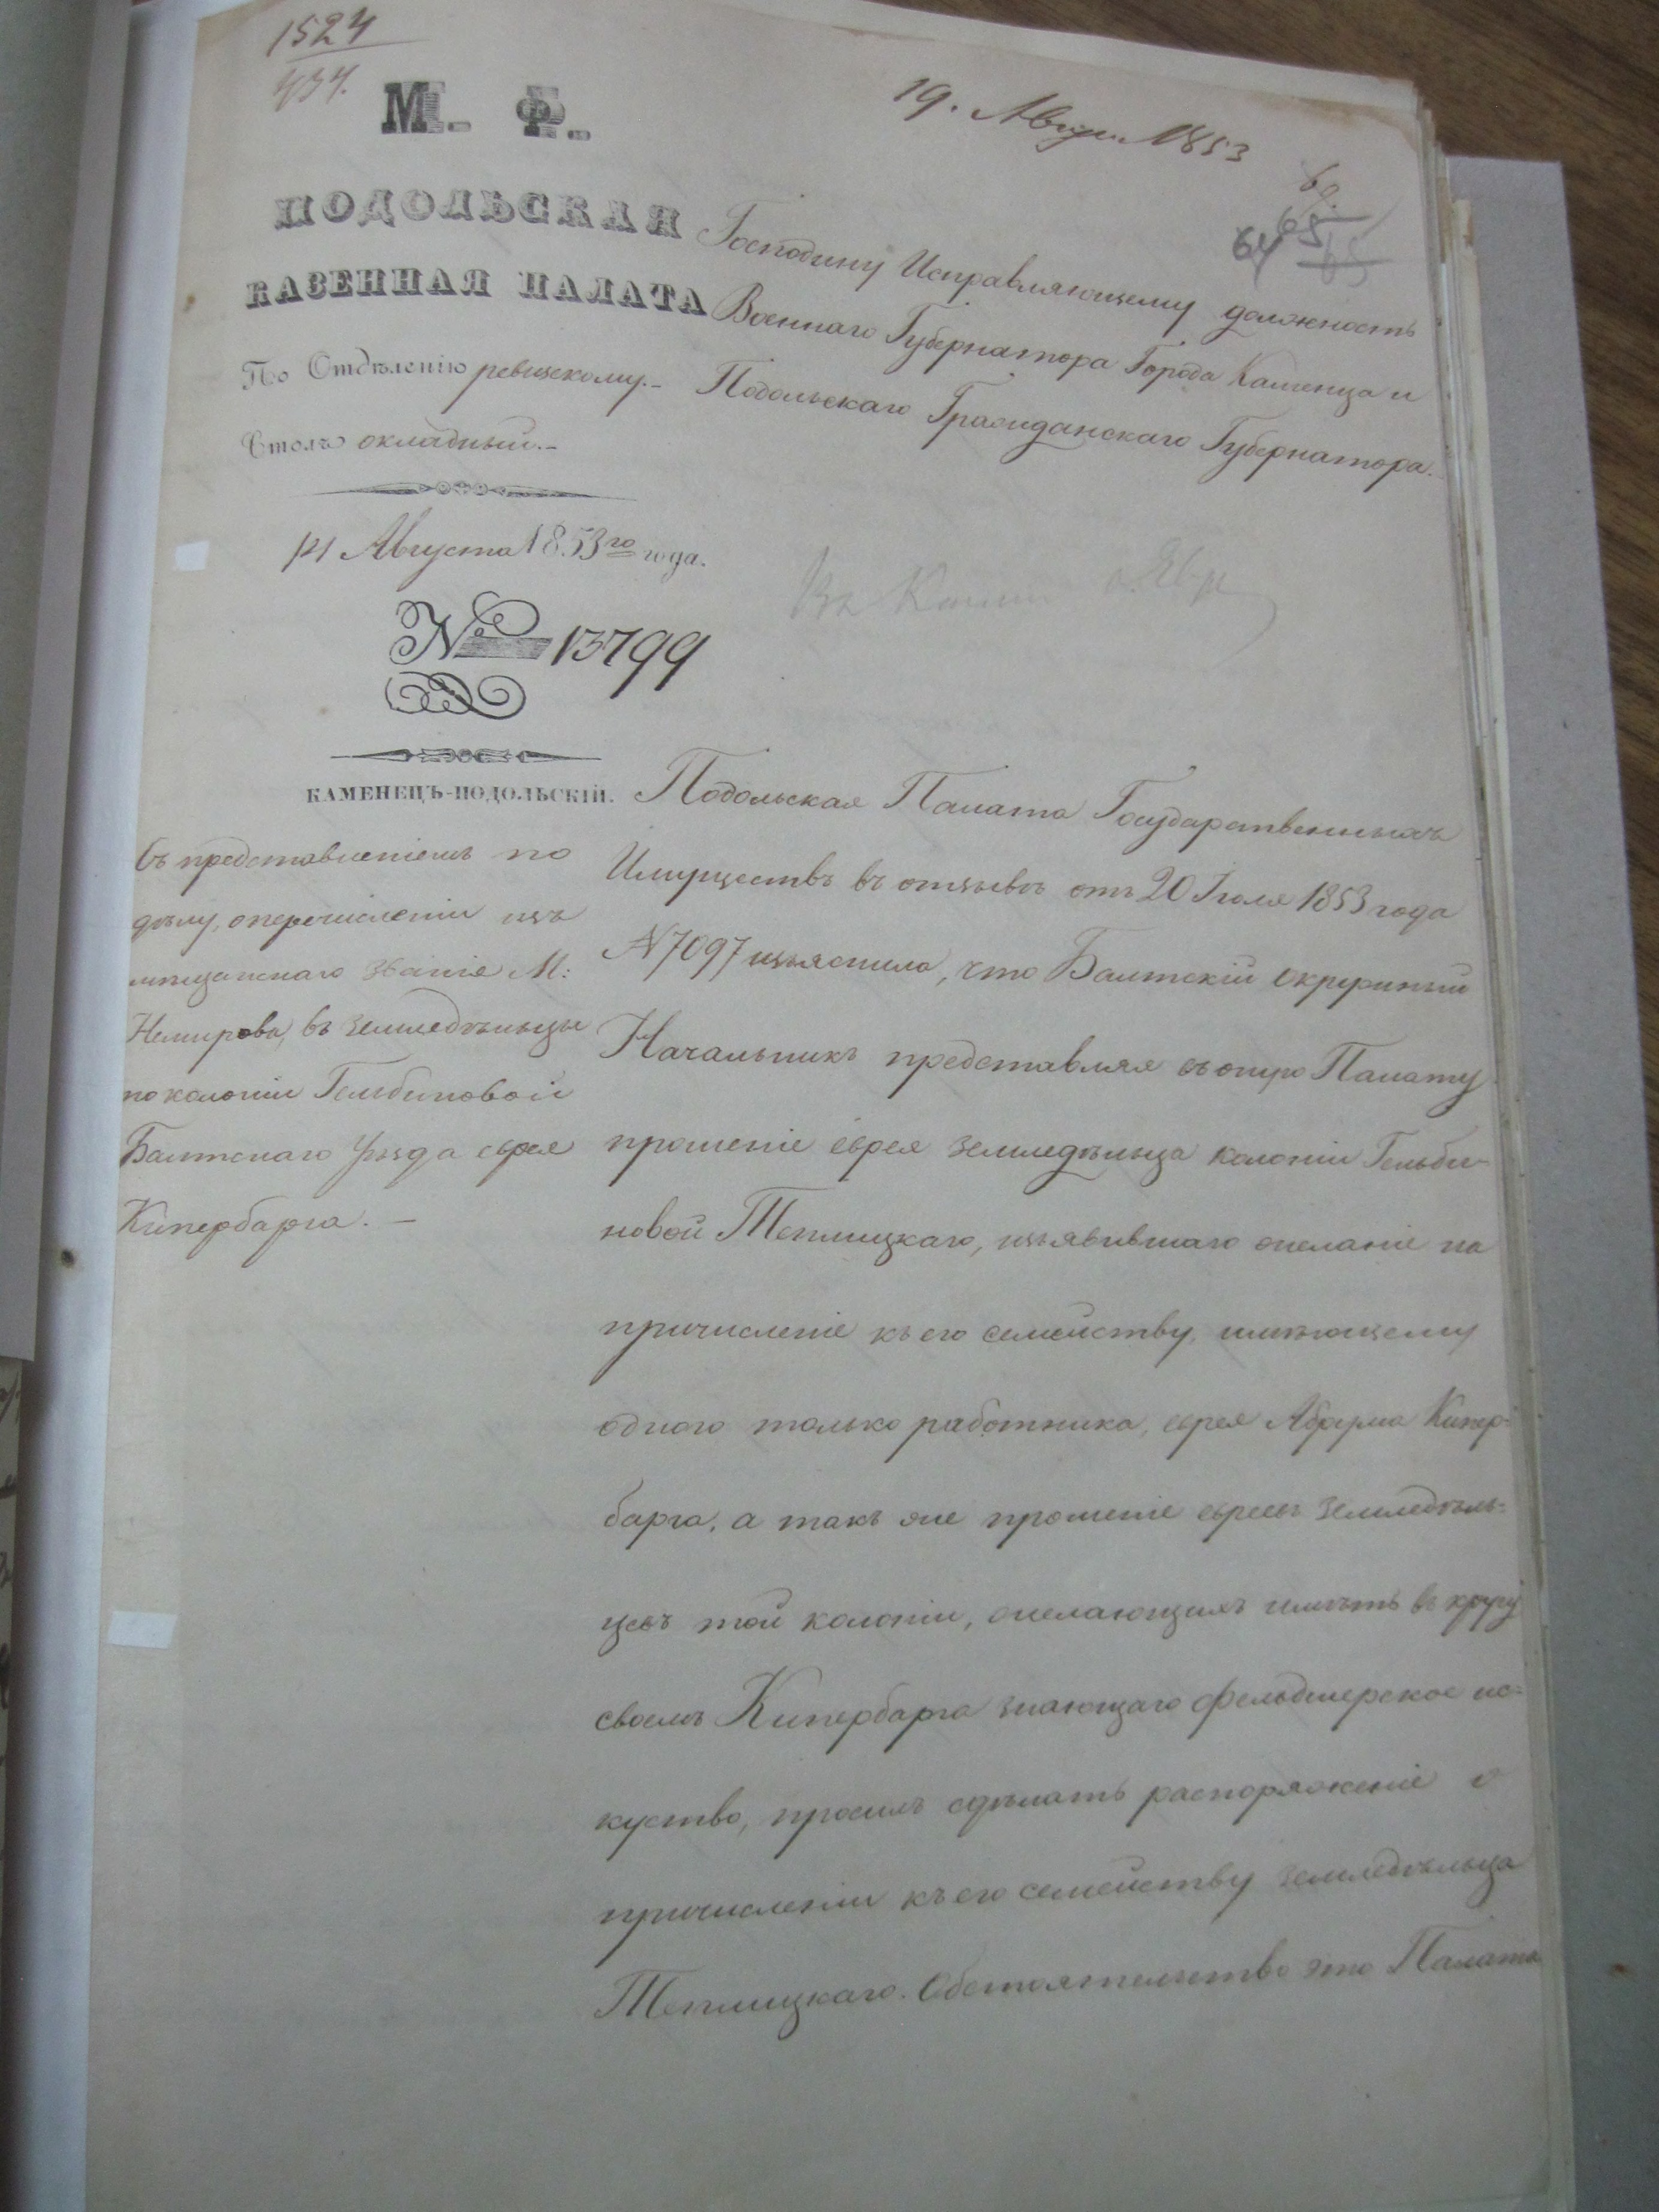 1524
434.
М. Ф.
19. Авгус. 1853
69.
65
64 65
ПОДОЛЬСКАЯ
КАЗЕННАЯ ПАЛАТА
По Отдѣленію ревизскому.-
Столъ окладный.-
14 Августа 1853го года.
№ 13799
КАМЕНЕЦЪ-ПОДОЛЬСКІЙ.
Съ представленіемъ по
дѣлу, о перечисленіи изъ
мѣщанскаго званія М:
Немирова, въ земледѣльцы
по колоніи Гельбиновой
Балтскаго Уѣзда еврея
Кипербарга. -
Господину Исправляющему должность
Военнаго Губернатора Города Каменца и
Подольскаго Гражданскаго Губернатора.
Подольская Палата Государственныхъ
Имуществъ въ отзывѣ отъ 20 Іюля 1853 года
N 7097 изъяснила, что Балтскій Окружный
Начальникъ представляя въ оную Палату
прошеніе еврея земледѣльца колоніи Гельби-
новой Теплицкаго, изъявившаго желаніе на
причисленіе къ его семейству, имѣющему
одного только работника, еврея Абрума Кипер-
барга, а такъ же прошеніе евреевъ земледѣль-
цевъ той колоніи, желающихъ имѣть въ кругу
своемъ Кипербарга знающаго фельдшерское ис-
куство, просилъ сдѣлать распоряженіе о
причисленіи къ его семейству земледѣльца
Теплицкаго. Обстоятельство это Палата